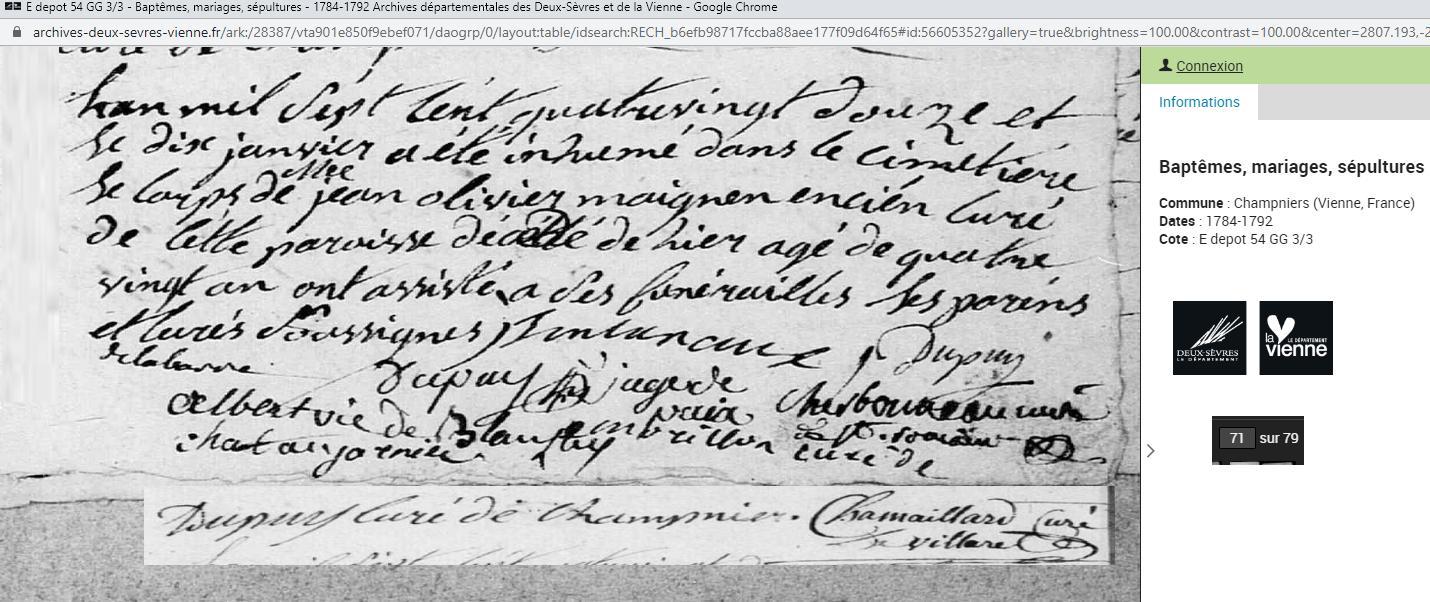 E depot 54 GG 3/3 - Baptêmes, mariages, sépultures - 1784-1792 Archives départementales des Deux-Sèvres et de la Vienne - Google Chrome
archives-deux-sevres-vienne.fr/ark:/28387/vta901e850f9ebef071/daogrp/0/layout:table/idsearch:RECH_b6efb98717fccba88aee177f09d64f65#id:56605352?gallery=true&brightness=100.00&contrast=100.00&center=2807.193,-2
lan mil sept cent quatrevingt douze et
le dix janvier a été inhumé dans le cimetiere
Mre
le corps de jean olivier maignen encien curé
de cette paroisse décédé de hier agé de quatre
vingt an ont assisté a ses funérailles ses parens
et curés soussignes
Dupuy
delabarre
Dupuy juge de
paix
albert vic de Blanzay
curé de
chatain
Dupuy curé de Champnier. Chamaillard curé
de villaret
Connexion
Informations
Baptêmes, mariages, sépultures
Commune : Champniers (Vienne, France)
Dates : 1784-1792
Cote : E depot 54 GG 3/3
DEUX-SÈVRES
LE DÉPARTEMENT
la vienne
LE DÉPARTEMENT
71 sur 79